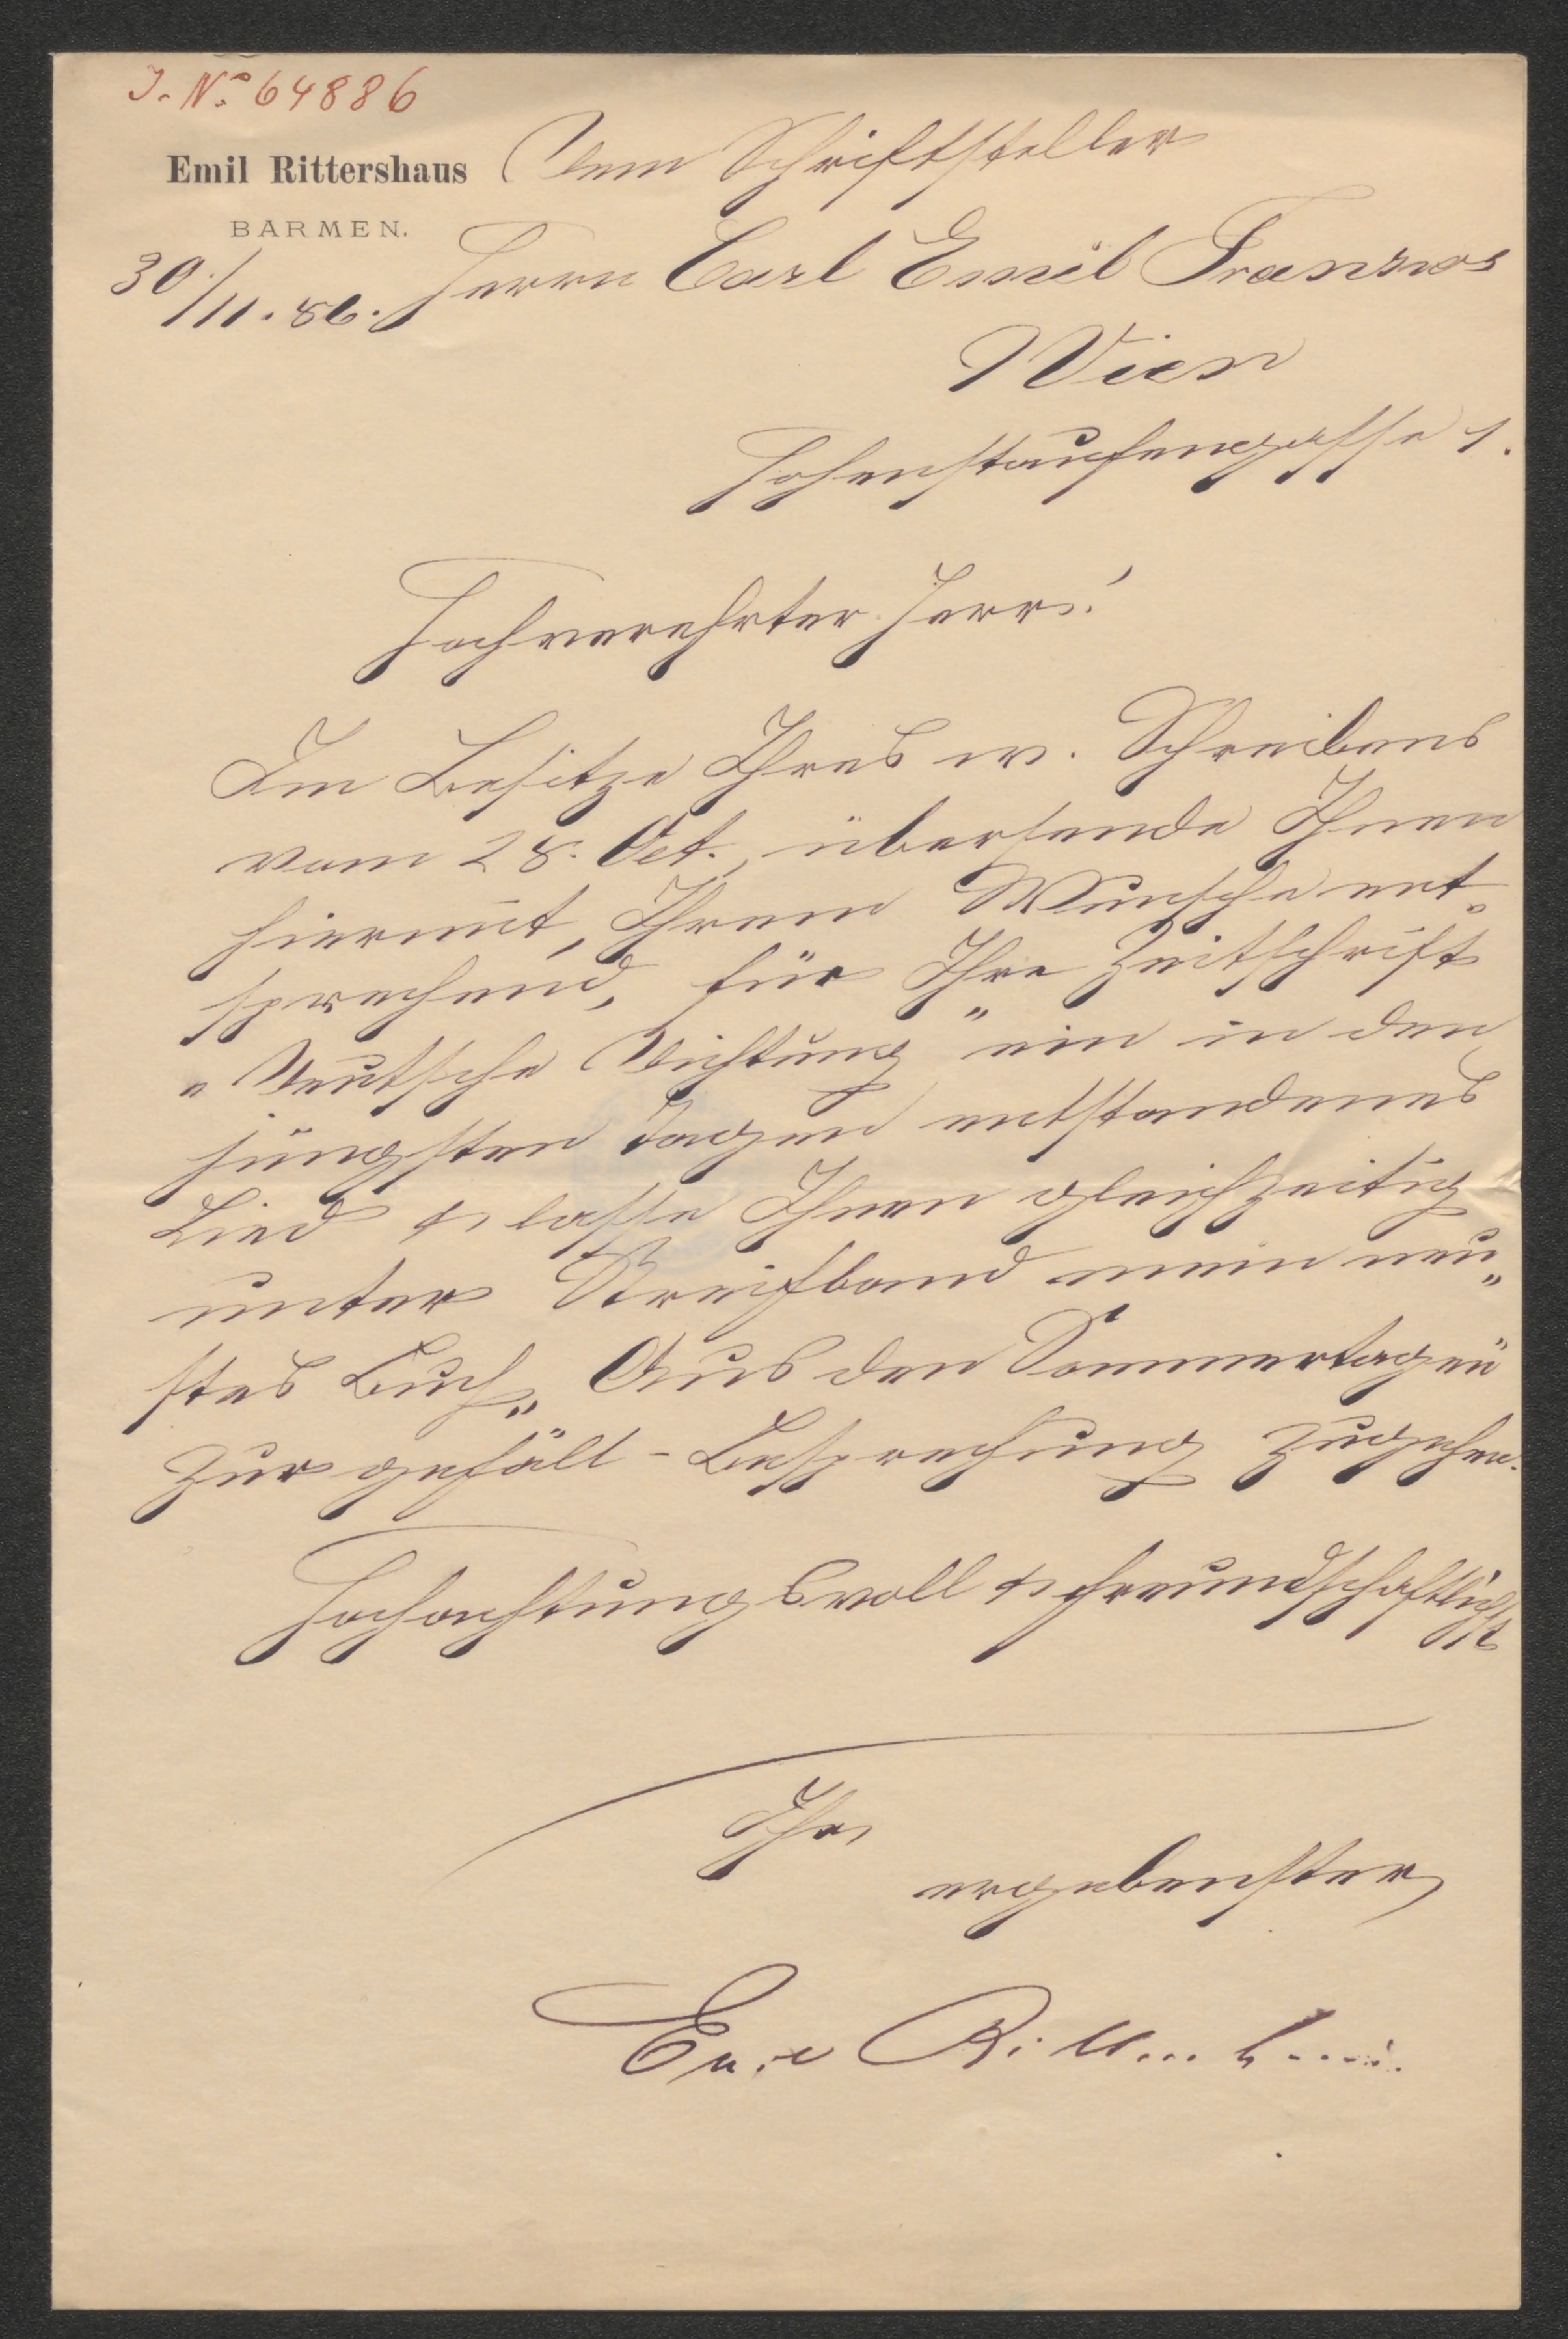 J. No 64886
Emil Rittershaus
BARMEN.
30./11. 86.
Dem Schriftsteller
Herrn Carl Emil Franzos
Wien
Hohenstaufengasse 1.
Hochverehrter Herr!
Im Besitze Ihres w. Schreibens
vom 28. Oct., übersende Ihnen
hiermit, Ihrem Wunsche ent-
sprechend, für Ihre Zeitschrift
„Deutsche Dichtung" ein in den
jüngsten Tagen entstandenes
Lied & lasse Ihnen gleichzeitig
unter Streifband mein neu-
stes Buch „Aus den Sommertagen"
zur gefäll. Besprechung zugehen.
Hochachtungsvoll & freundschaftlichst
Ihr
ergebenster
Emil Rittershaus.